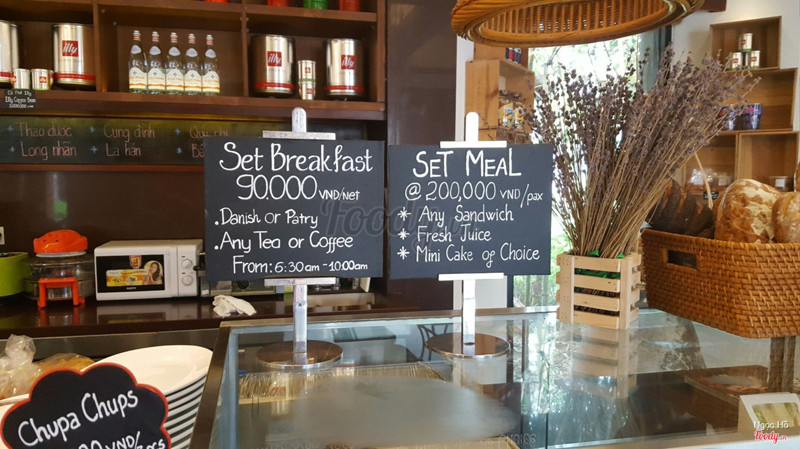 illy
illy
illy
Thảo dược + Cung đình + Quý phi
Long nhãn + La hán +
Set Breakfast
90.000 VND/net
. Danish or Patry
. Any Tea or Coffee
From: 6:30am - 10:00am
SET MEAL
@ 200,000 VND/pax
* Any Sandwich
* Fresh Juice
* Mini Cake of Choice
Foody
Chupa Chups
VND/pcs
Ngọc Hồ
Foody.vn